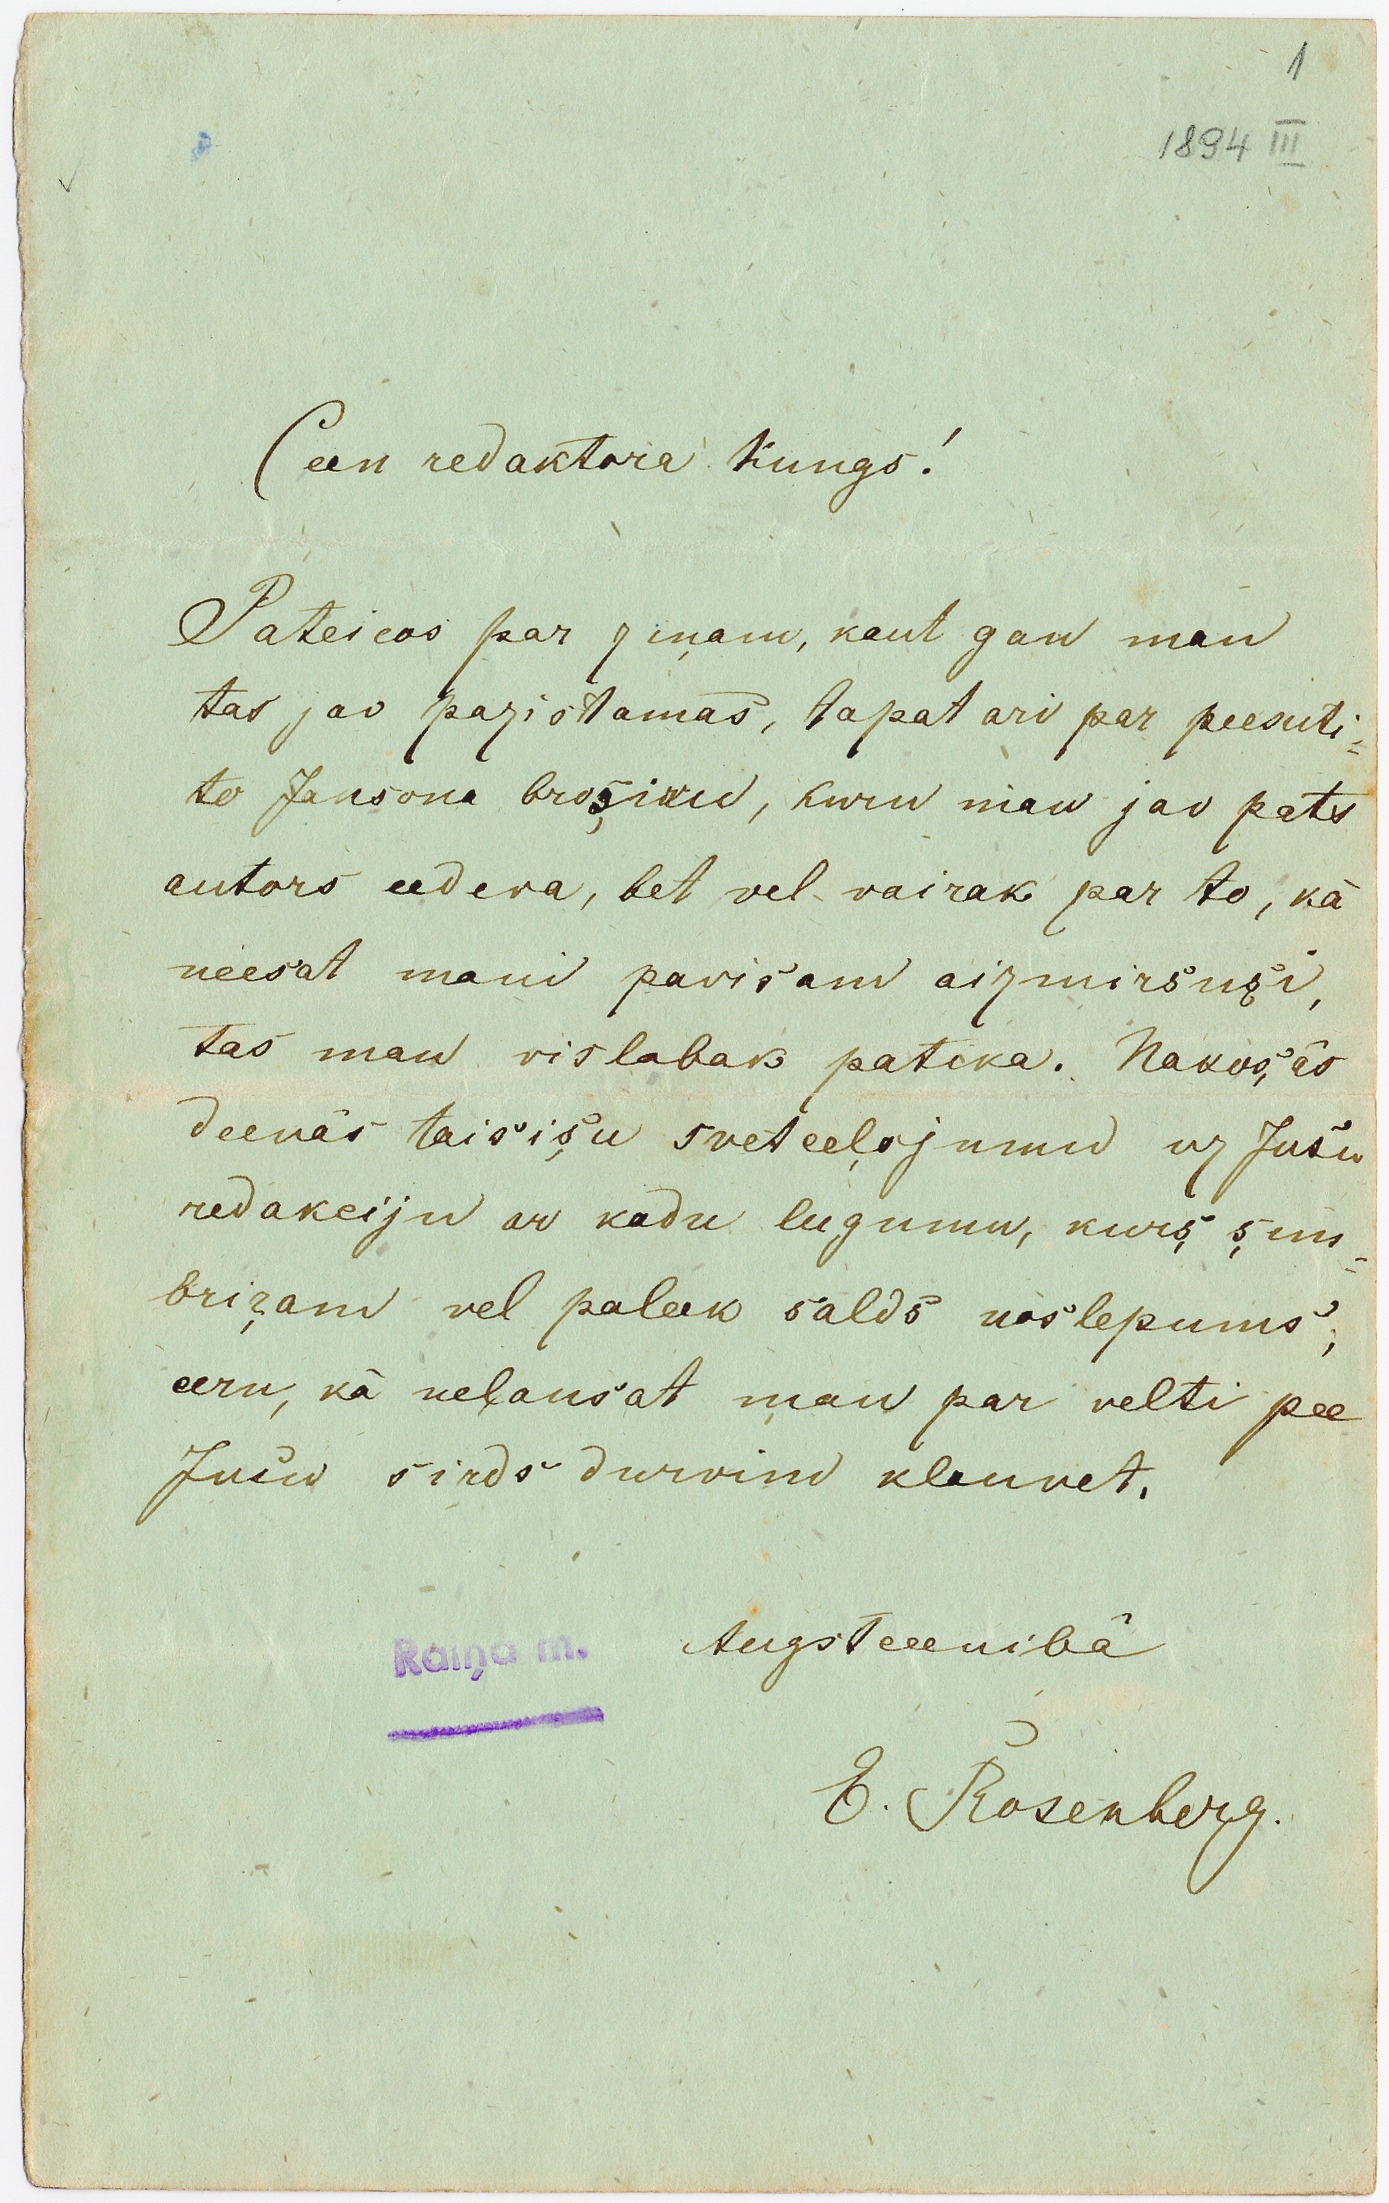 1
1894 III
Ceen redaktora kungs!
Pateicos par ziņam, kaut gan man
tas jav pazistamas, tapat ari par peesuti-
to Jansona broşiru, kuru man jav pats
autors eedeva, bet vel vairak par to, kā
neesat mani pavisam aizmirsuşi,
tas man vislabak patika. Nakoşās
deenās taisişu sveteeļojumu uz Jusu
redakciju ar kadu lugumu, kurş şim-
brizam vel paleek salds noslepums;
ceru, kā neļausat man par velti pee
Jusu sirds durvim klauvet.
Augstceenibā
Raiņa m.
E. Rosenberg.